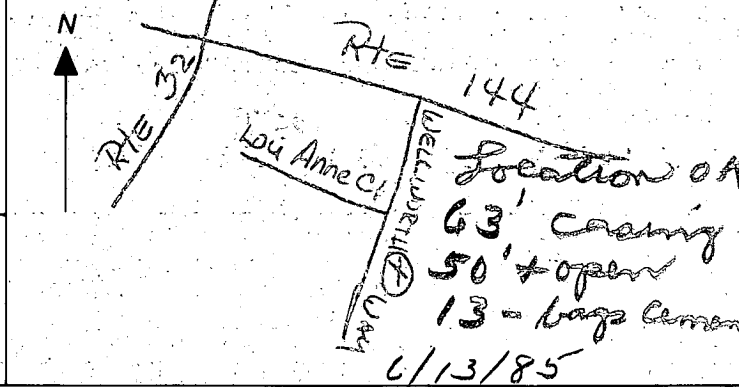 N
RtE 144
RtE 32
Lou Anne Ct
WELLWORTH WAY
Location OK
63' casing
50' + open
13 - bags cement
6/13/85